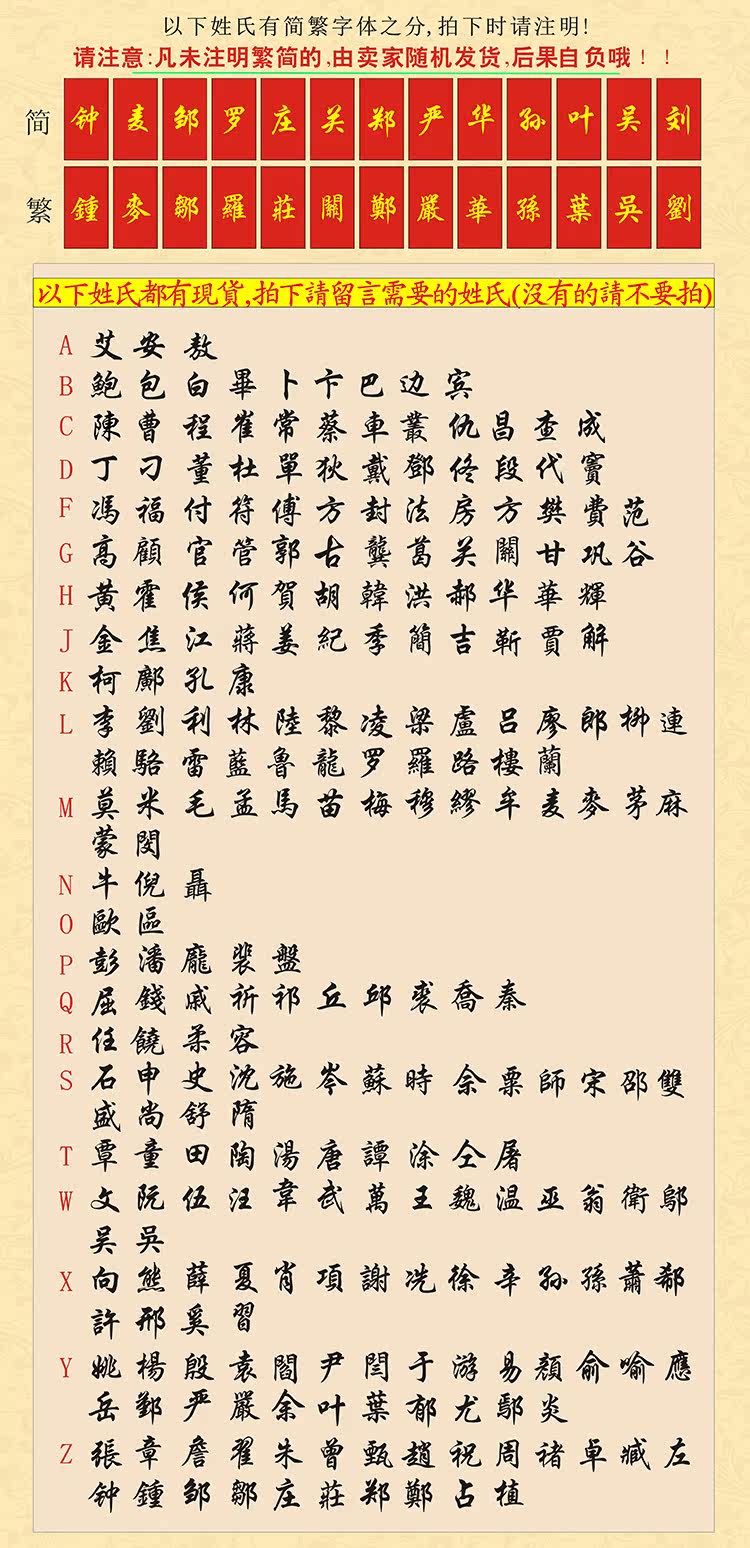 以下姓氏有简繁字体之分,拍下时请注明!
请注意:凡未注明繁简的,由卖家随机发货,后果自负哦！！
简 钟 麦 邹 罗 庄 关 郑 严 华 孙 叶 吴 刘
繁 鍾 麥 鄒 羅 莊 關 鄭 嚴 華 孫 葉 吳 劉
以下姓氏都有現貨,拍下請留言需要的姓氏(沒有的請不要拍)
A 艾 安 敖
B 鮑 包 白 畢 卜 卞 巴 边 宾
C 陳 曹 程 崔 常 蔡 車 叢 仇 昌 查 成
D 丁 刁 董 杜 單 狄 戴 鄧 佟 段 代 竇
F 馮 福 付 符 傅 方 封 法 房 方 樊 費 范
G 高 顧 官 管 郭 古 龔 葛 关 關 甘 巩 谷
H 黄 霍 侯 何 賀 胡 韓 洪 郝 华 華 輝
J 金 焦 江 蔣 姜 紀 季 簡 吉 靳 賈 解
K 柯 鄺 孔 康
L 李 劉 利 林 陸 黎 凌 梁 盧 吕 廖 郎 柳 連
賴 駱 雷 藍 魯 龍 罗 羅 路 樓 蘭
M 莫 米 毛 孟 馬 苗 梅 穆 繆 牟 麦 麥 茅 麻
蒙 閔
N 牛 倪 聶
O 歐 區
P 彭 潘 龐 裴 盤
Q 屈 錢 戚 祈 祁 丘 邱 裘 喬 秦
R 任 饒 柔 容
S 石 申 史 沈 施 岑 蘇 時 佘 粟 師 宋 邵 雙
盛 尚 舒 隋
T 覃 童 田 陶 湯 唐 譚 涂 仝 屠
W 文 阮 伍 汪 韋 武 萬 王 魏 温 巫 翁 衛 鄔
吴 吳
X 向 熊 薛 夏 肖 項 謝 冼 徐 辛 孙 孫 蕭 郗
許 邢 奚 習
Y 姚 楊 殷 袁 閻 尹 閆 于 游 易 顏 俞 喻 應
岳 鄞 严 嚴 余 叶 葉 郁 尤 鄢 炎
Z 張 章 詹 翟 朱 曾 甄 趙 祝 周 褚 卓 臧 左
钟 鍾 邹 鄒 庄 莊 郑 鄭 占 植